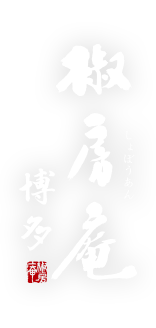 椒房庵
博多